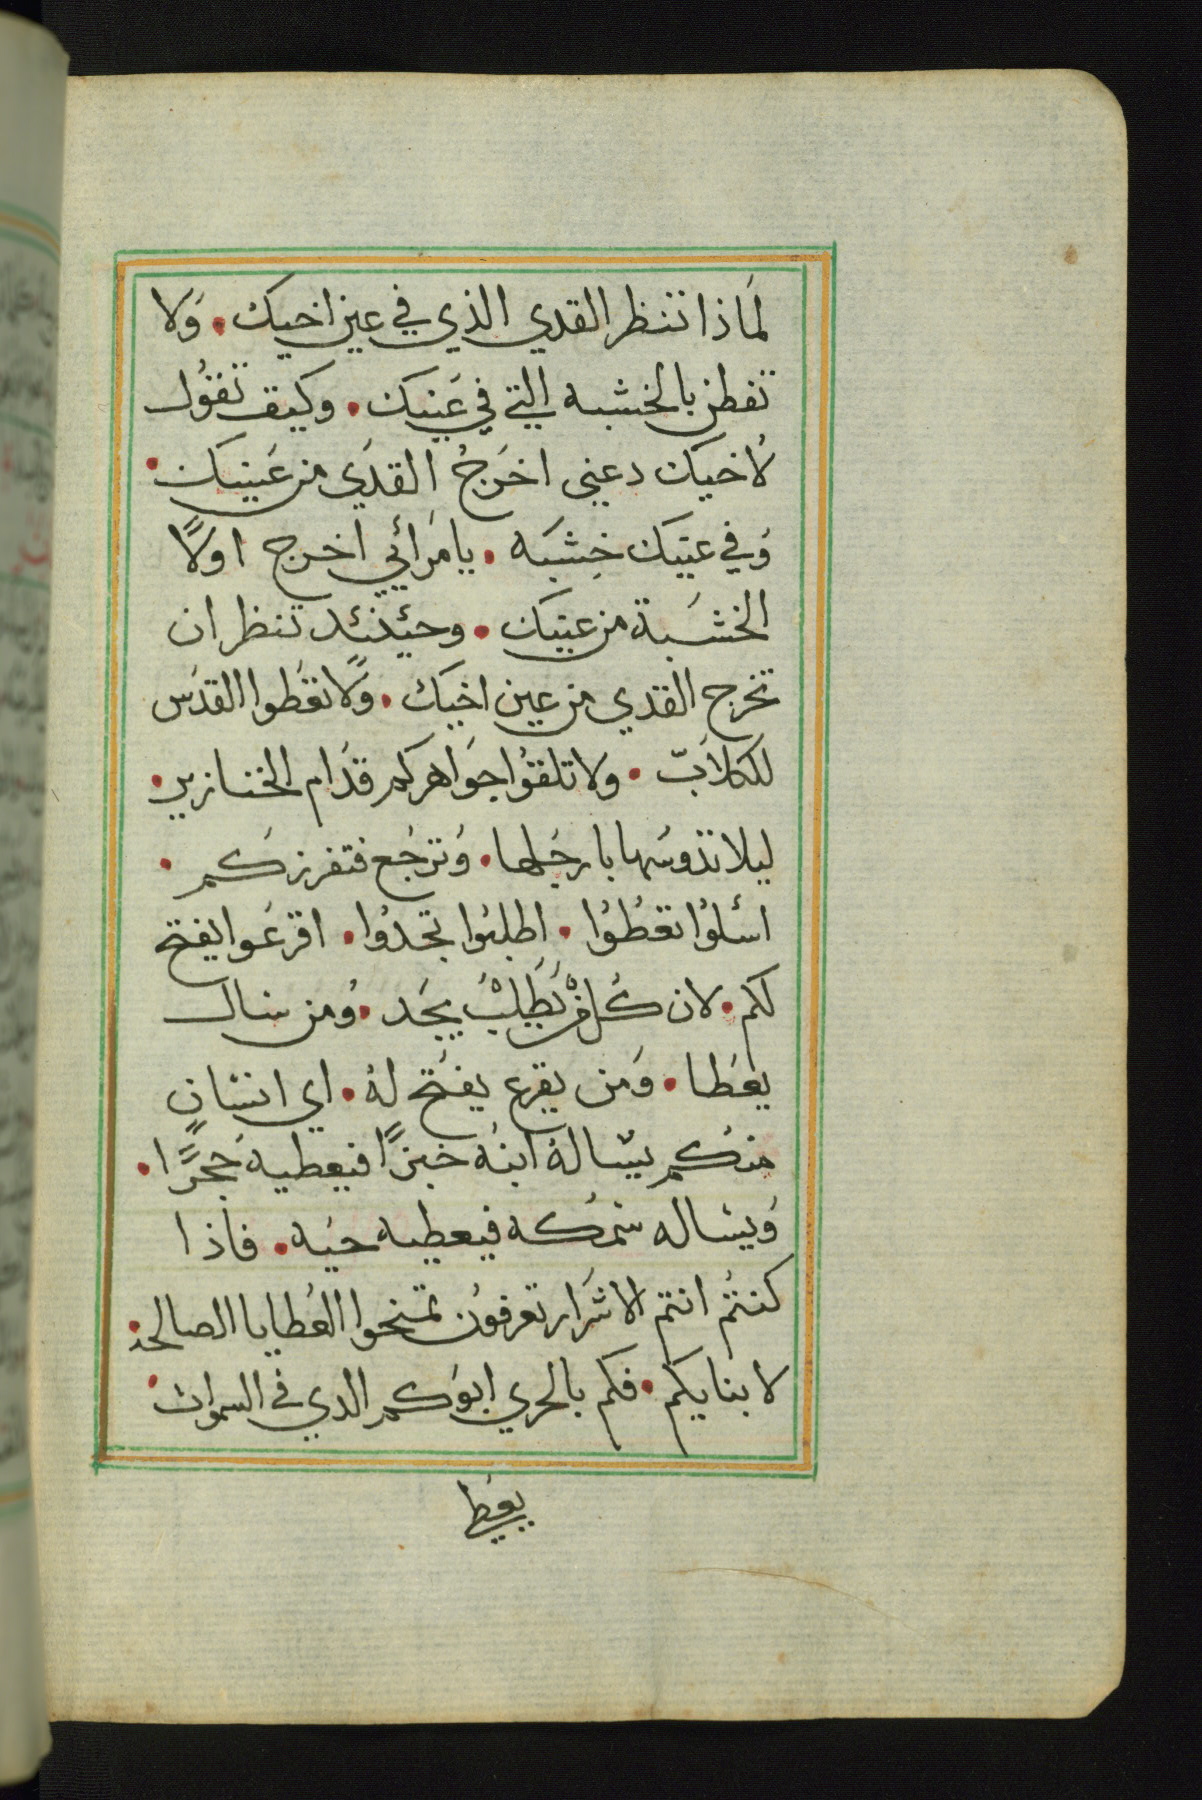 لماذا تنظر القدي الذي في عين اخيك. وَلا
تفطن بالخشبه التي في عَينيك. وكيف تقوُل
لاُخيك دعني اخرَجُ القدَي من عَينيك.
وَفي عينيك خِشبَه. يا مرَائي اخرج اولاً
الخشَبة من عينيك. وحيئنئد تنظر ان
تخرج القدي من عين اخيك. وَلاً تعَطوا القدَس
للكلاَبّ. ولا تلقوُا جوَاهركم قدَام الخنازير.
ليلا تدوسُها بارجَلها. وَترجَع فتفرزكَم.
اسٔلوُا تعَطُوُا. اطلبُوا تجدوُا. اقرعَوا يفتح
لكم. لان كُل منْ يَطَلِبُ يجَد. وُمن سال
يعَطا. وَمن يقرع يفتح لهُ. اي انسَانٍ
منكُم يسَالهُ ابنهُ خبزاً فيعطيه حَجرًا.
وَيسَاله سَمكُه فيعطيه حيَه. فاذا
كنتمُ انتم الاشرَار تعرفوُن تمنحوا العُطايا الصالحة.
لابنايكم. فكم بالحري ابوَكُم الدي في السموات.
يعَطي